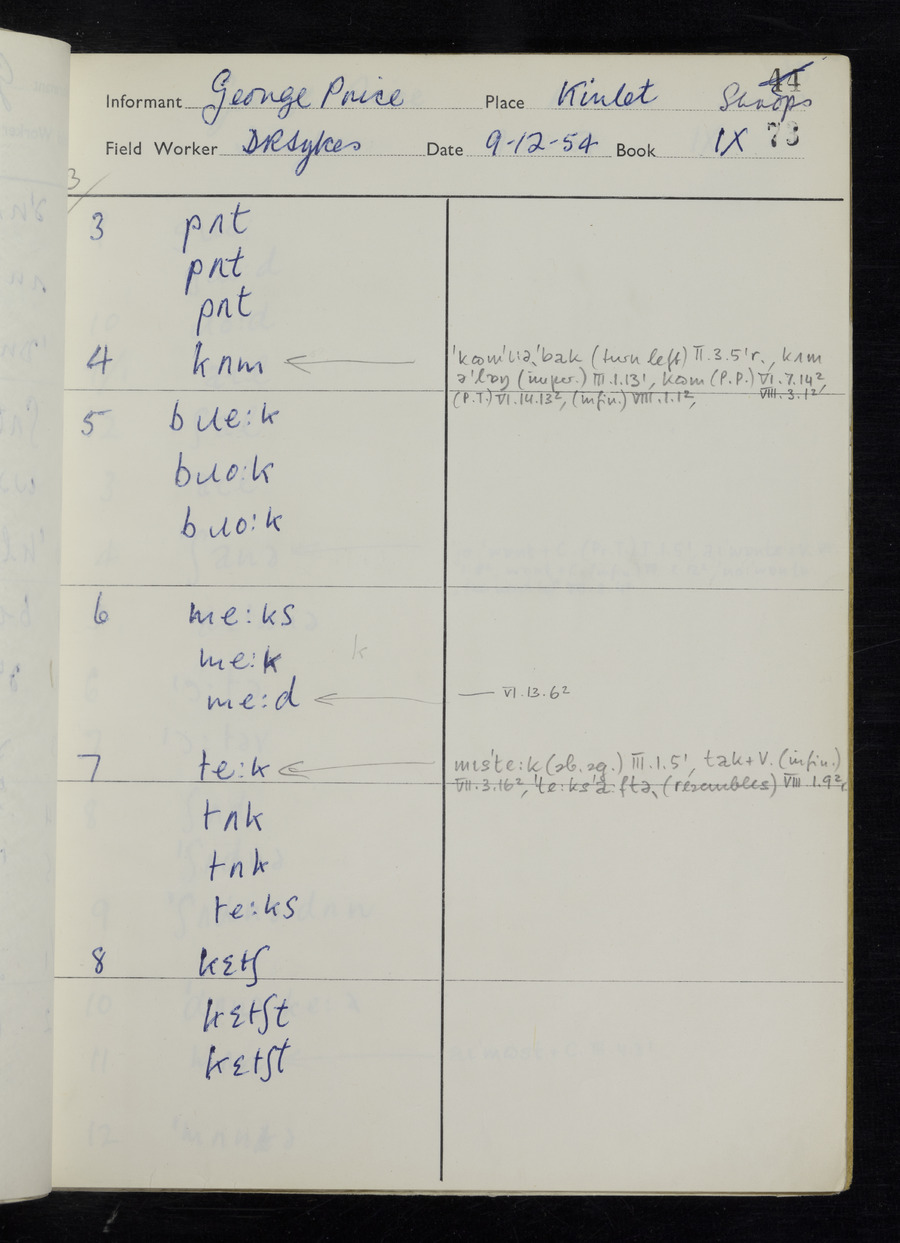 44
Informant George Price Place Kinlet Shrops
Field Worker DRSykes Date 9-12-54 Book IX 73
3 pʌt
pʌt
pʌt
4 kʌm ← 'kʊm'liə'bak (turn left) II.3.5'r., kʌm
ə'lɒŋ (imper.) III.1.13', kʊm (P.P.) VI.7.14²,
(P.T.) VI.14.13², (infin.) VIII.1.1², VIII.3.12'
5 bɹe:k
bɹo:k
bɹo:k
6 me:ks
me:k k
me:d ← VI.13.6²
7 te:k ← mɪste:k (sb. sg.) III.1.5', tak+V. (infin.)
VII.3.16², 'te:ks'a:ftə (resembles) VIII 1.9²
tʌk
tʌk
te:ks
8 kɛtʃ
kɛtʃt
kɛtʃt